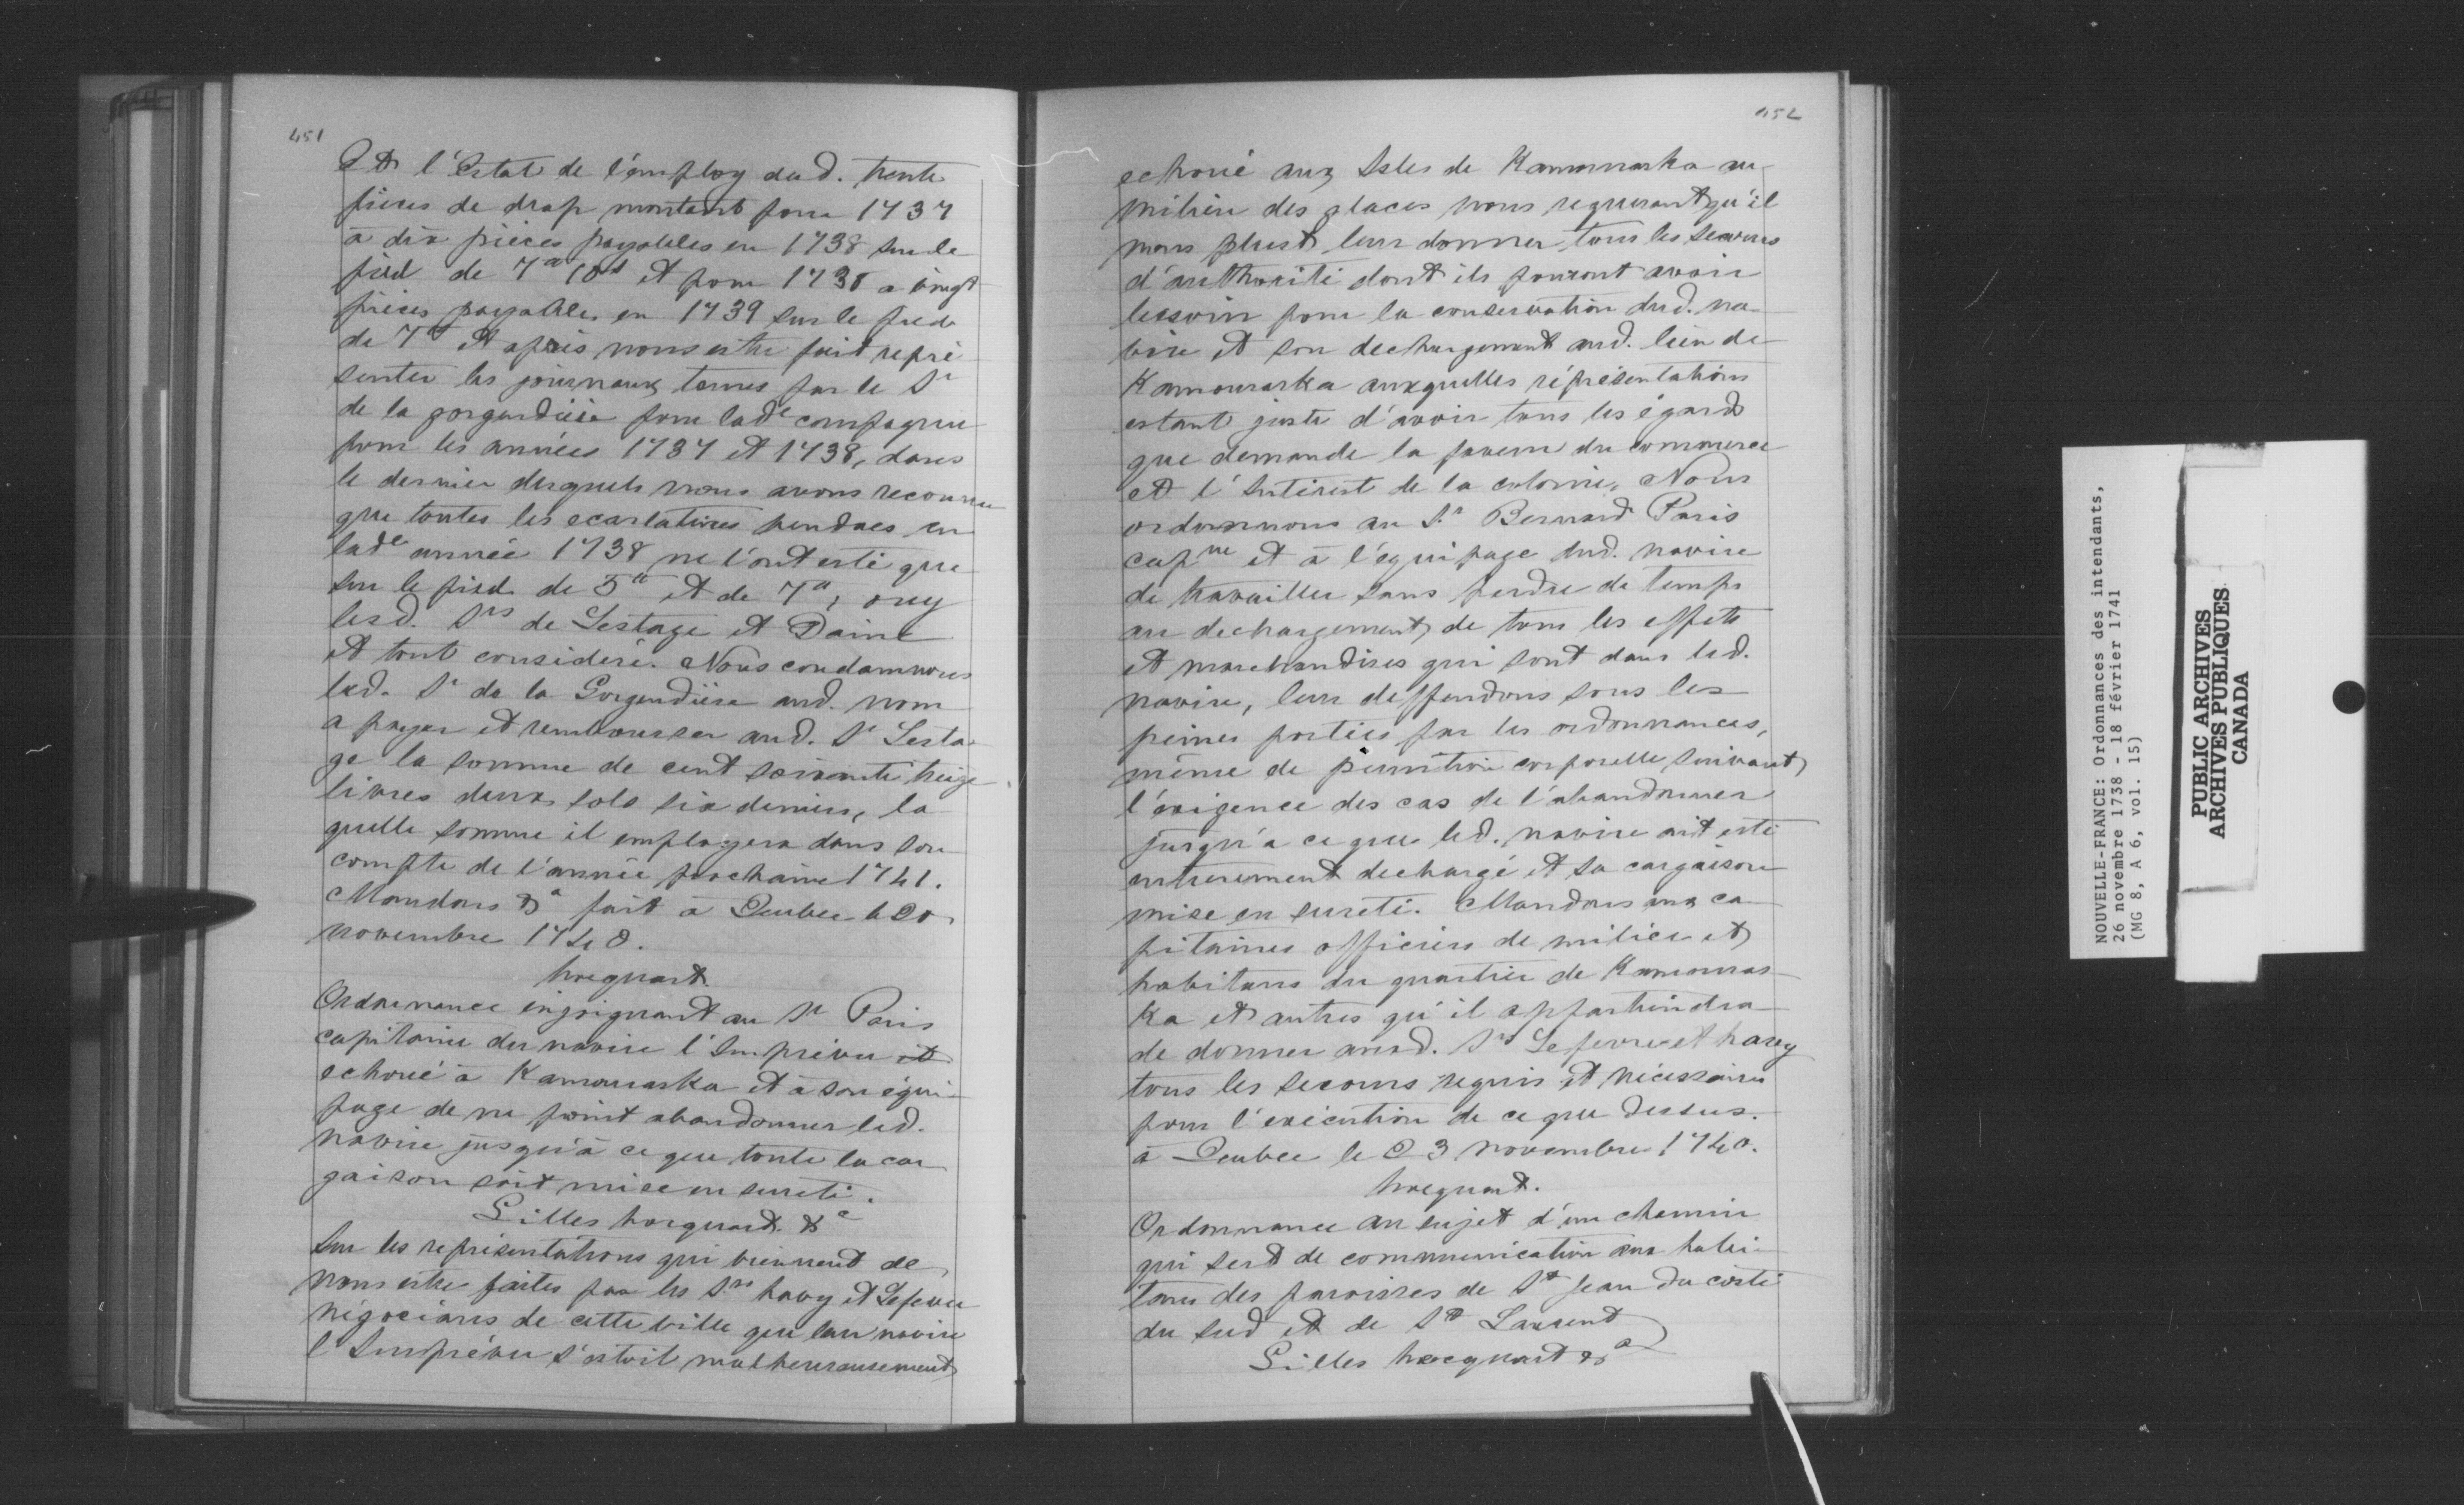 451
Et l'Estat de l'employ dud. trente
pieces de drap montant pour 1737
à dix pièces payables en 1738 sur le
pied de 7tt 10s et pour 1738 a vingt
pièces payables en 1739 sur le pied
de 7tt et après nous estre fait repré
senter les journaux tenus par le Sr
de la gorgendière pour lade compagnie
pour les années 1737 et 1738, dans
le dernier desquels nous avons reconnu
que toutes les ecarlatines vendues en
lade année 1738 ne l'ont esté que
sur le pied de 5tt et de 7tt, ouy
lesd. Srs de Lestage et Daine
et tout consideré. Nous condamnons
led. Sr de la Gorgendière aud. nom
a payer et rembourser aud. Sr Lesta
ge la somme de cent soixante treize
livres deux sols six deniers, la
quelle somme il employera dans son
compte de l'année prochaine 1741.
Mandons &a fait à Quebec le 20
novembre 1740.
hocquart.
Ordonnance enjoignant au Sr Paris
capitaine du navire l'Imprévu et
echoué à Kamouraska et à son équi-
page de ne point abandonner led.
navire jusqu'à ce que toute la car
gaison soit mise en sureté.
Gilles hocquart &c
Sur les représentations qui viennent de
nous estre faites par les Srs havy et Lefevre
négocians de cette ville que leur navire
l'Imprévu s'estoit malheureusement
452
echoué aux Isles de Kamouraska au
milieu des glaces nous requerant qu'il
nous plust leur donner tous les secours
d'authorité dont ils pouront avoir
besoin pour la conservation dud. na-
vire et son dechargement aud. lieu de
Kamouraska auxquelles réprésentations
estant juste d'avoir tous les égards
que demande la faveur du commerce
et l'Intérest de la colonie, Nous
ordonnons au Sr Bernard Paris
capne et à l'équipage dud. navire
de travailler sans perdre de temps
au dechargement de tous les effets
et marchandises qui sont dans led.
navire, leur deffendons sous les
peines portées par les ordonnances,
même de punition corporelle suivant
l'exigence des cas de l'abandonner
jusqu'a ce que led. navire ait esté
entierement dechargé et sa cargaison
mise en sureté. Mandons aux ca
pitaines officiers de milice et
habitans du quartier de Kamouras
ka et autres qu'il appartiendra
de donner ausd. Srs Lefevre et havy
tous les secours requis et nécessaires
pour l'exécution de ce que dessus.
à Quebec le 23 novembre 1740.
hocquart.
Ordonnance au sujet d'un chemin
qui sert de communication aux habi-
tans des paroisses de St Jean du costé
du sud et de St Laurent
Gilles hocquart &a
NOUVELLE-FRANCE: Ordonnances des intendants,
26 novembre 1738 - 18 février 1741
(MG 8, A 6, vol. 15)
PUBLIC ARCHIVES
ARCHIVES PUBLIQUES
CANADA